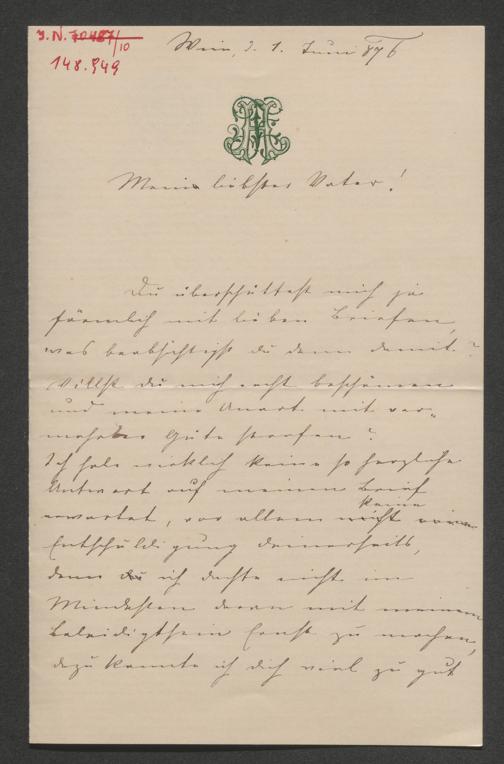 J.N. 70487/10
148.949
Wien, d. 1. Juni 876
Mein liebster Vater!
Du überschüttest mich ja
förmlich mit lieben Briefen,
was beabsichtigst du denn damit?
Willst du mich recht beschämen
und meine Unart mit ver-
mehrter Güte strafen?
Ich habe wirklich keine so herzliche
Antwort auf meinen Brief
keine
erwartet, vor allem nicht eine
Entschuldigung deinerseits,
denn du ich dachte nicht im
Mindesten daran mit meinem
Beleidigtsein Ernst zu machen,
dazu kannte ich dich viel zu gut